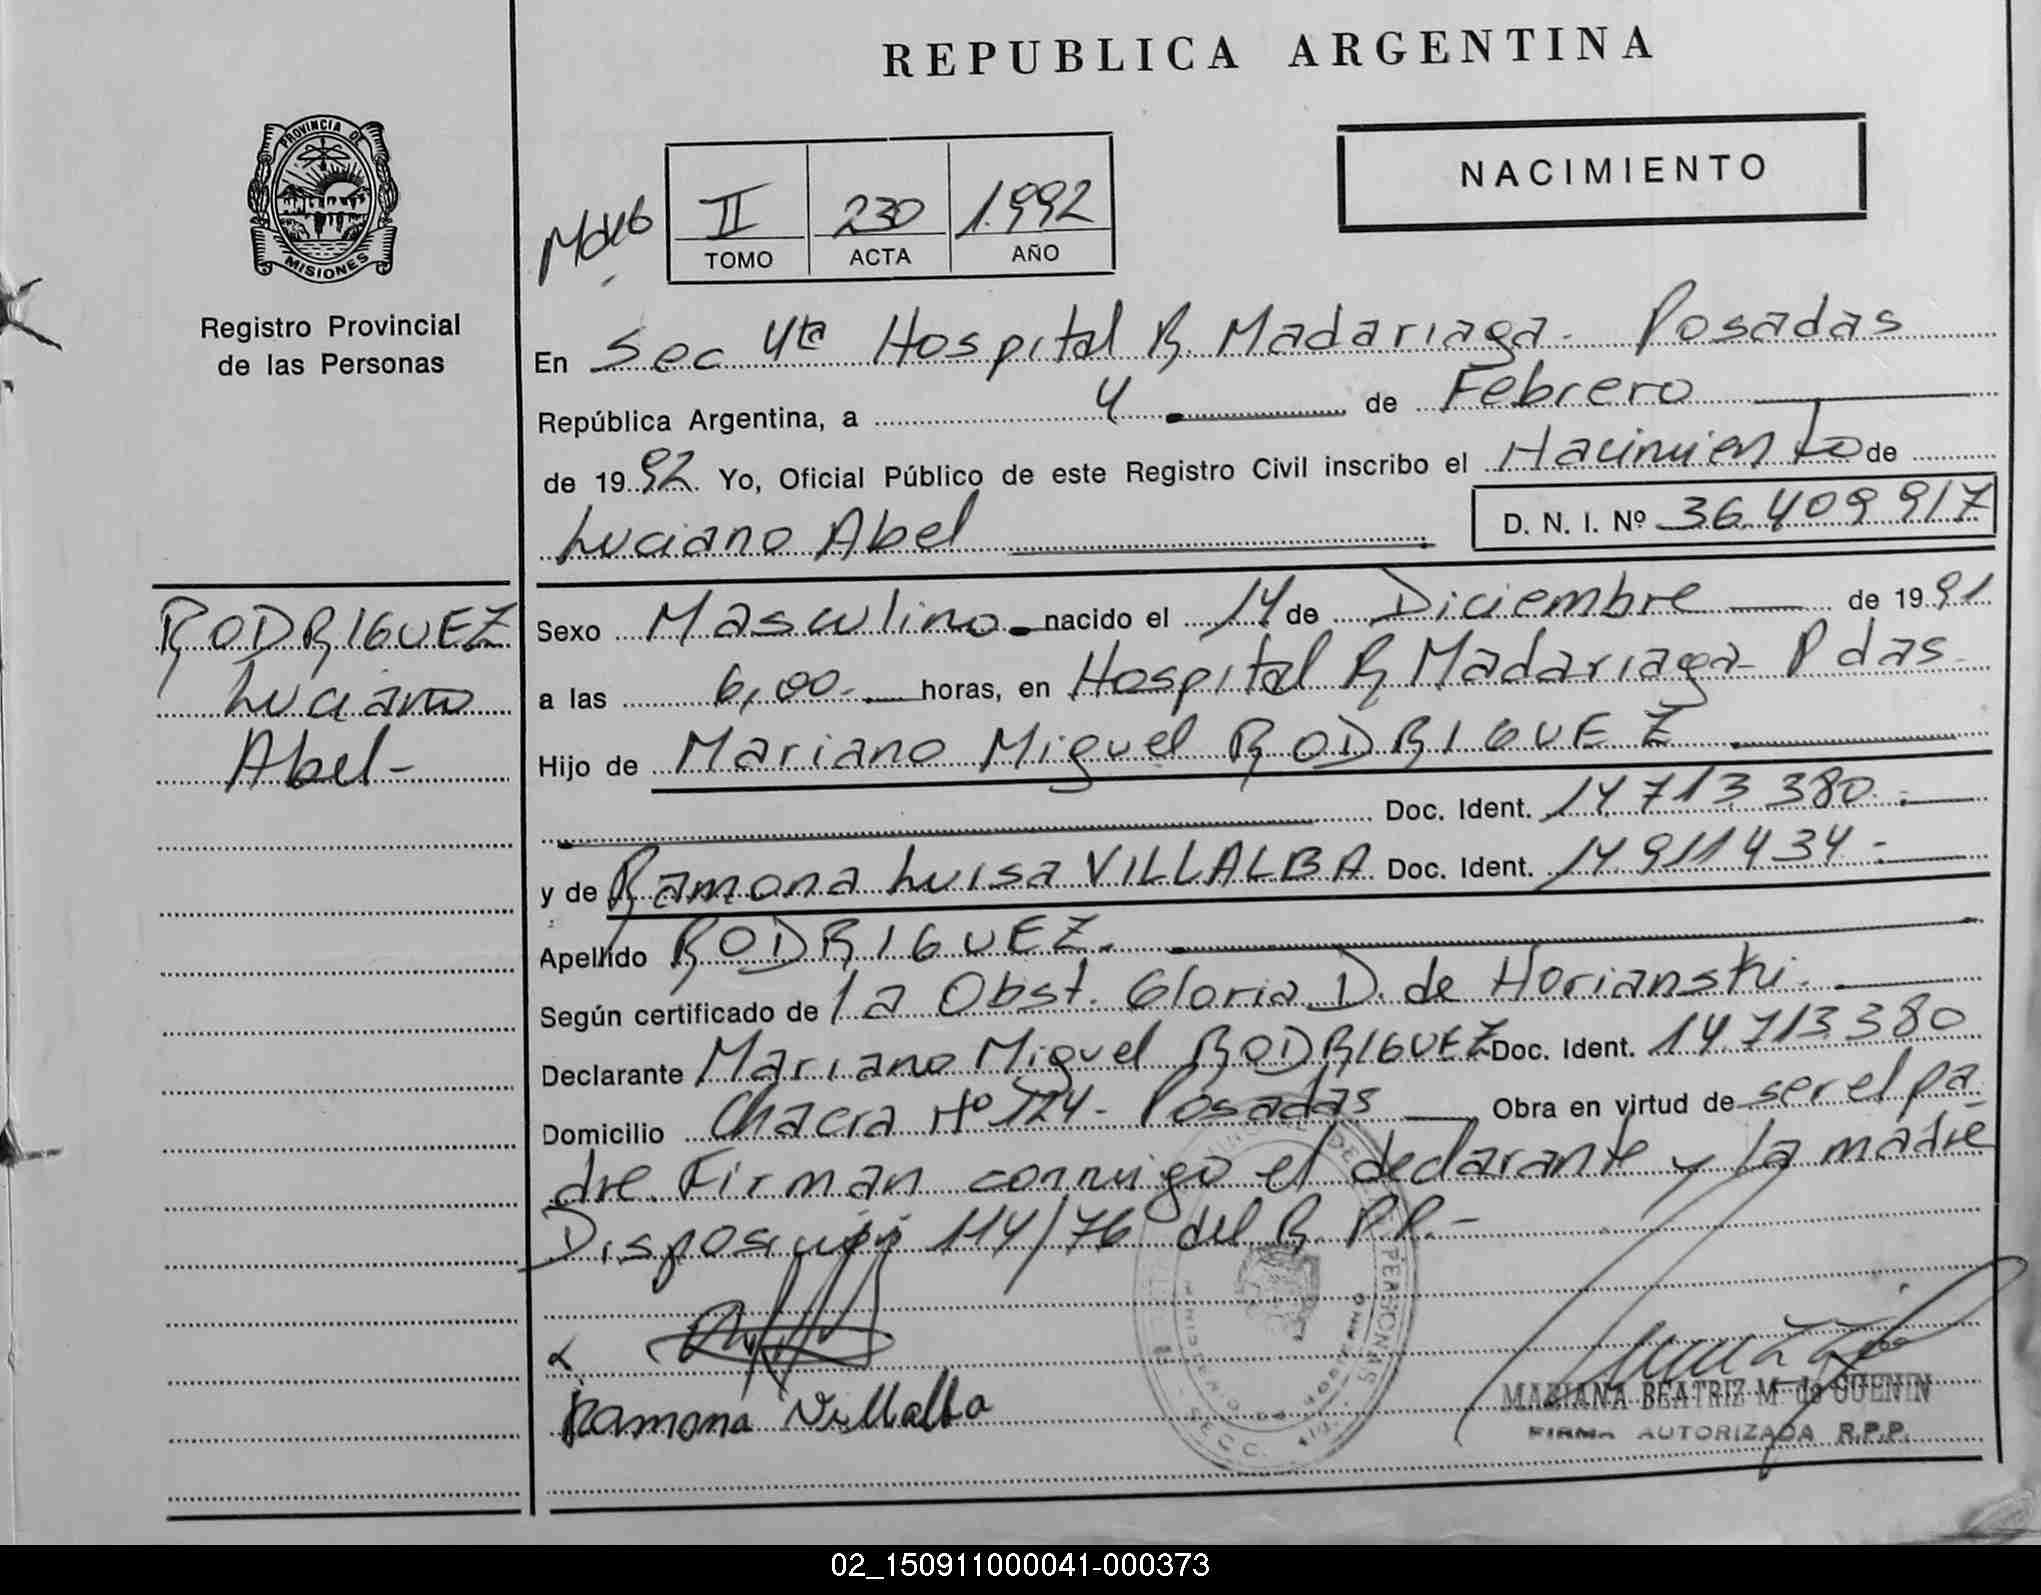 REPUBLICA ARGENTINA
PROVINCIA DE
MISIONES
Registro Provincial
de las Personas
NACIMIENTO
II 230 1.992
TOMO ACTA AÑO
En Sec 4ta Hospital R. Madariaga. Posadas
República Argentina, a 4 de Febrero
de 1992 Yo, Oficial Público de este Registro Civil inscribo el Nacimiento de
Luciano Abel D. N. I. Nº 36.409.917
RODRIGUEZ
Luciano
Abel-
Sexo Masculino nacido el 14 de Diciembre de 1991
a las 6,00 horas, en Hospital R Madariaga - Pdas -
Hijo de Mariano Miguel RODRIGUEZ
Doc. Ident. 14.713.380.-
y de Ramona Luisa VILLALBA Doc. Ident. 14.911.434.-
Apellido RODRIGUEZ.
Según certificado de la Obst. Gloria D. de Horianski.
Declarante Mariano Miguel RODRIGUEZ Doc. Ident. 14.713.380
Domicilio Chacra Nº 124 - Posadas Obra en virtud de ser el pa
dre. Firman conmigo el declarante y la madre
Disposición 114/76 del R. P.P.-
Ramona Villalba
MARIANA BEATRIZ M. de GUENIN
FIRMA AUTORIZADA R.P.P.
02_150911000041-000373